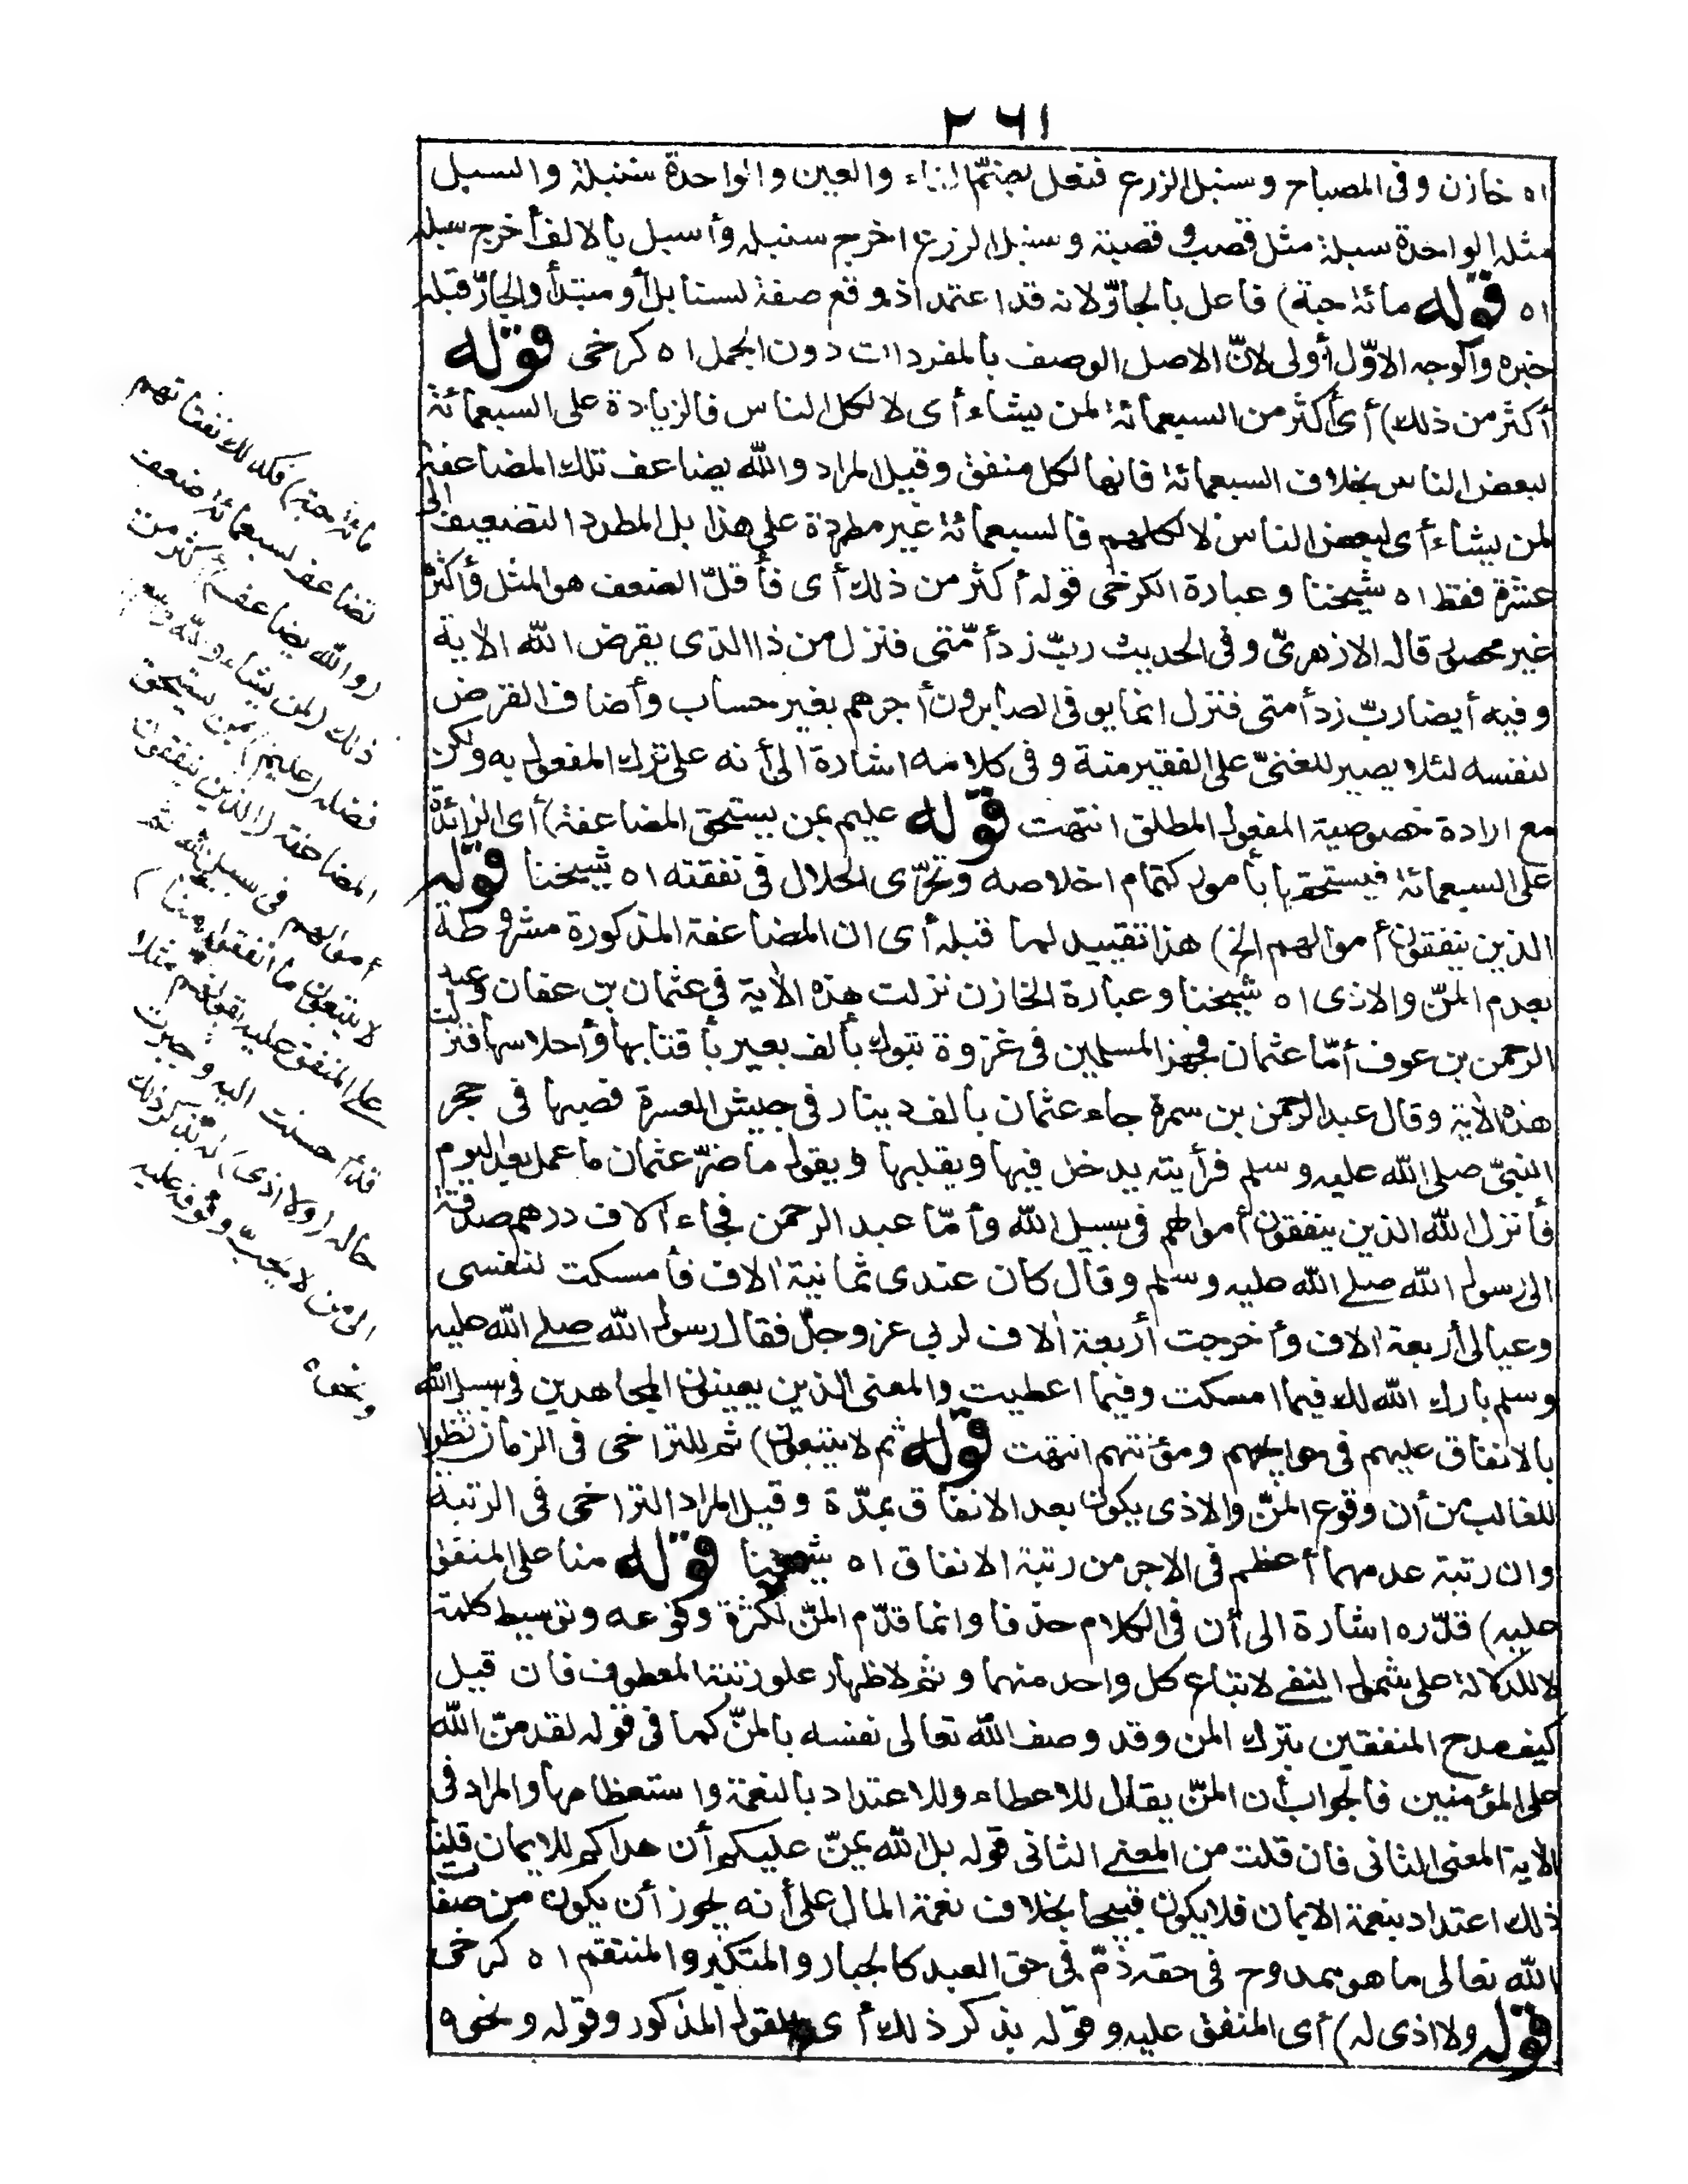 ٢٦١
اه خازن وفى المصباح وسنبل الزرع فنعل بضمّ الفاء والعين والواحدة سنبلة والسبل
مثله الواحدة سبلة مثل قصب وقصبة وسنبل الزرع اخرج سنبله وأسبل بالالف أخرج سبله
اه قوله مائة حبة) فاعل بالجارّ لانه قد اعتمد اذ وقع صفة لسنابل أو مبتدأ والجارّ قبله
خبره والوجه الاوّل أولى لانّ الاصل الوصف بالمفردات دون الجمل اه كرخى قوله
أكثر من ذلك) أى أكثر من السبعمائة لمن يشاء أى لا لكل الناس فالزيادة على السبعمائة
لبعض الناس بخلاف السبعمائة فانها لكل منفق وقيل المراد والله يضاعف تلك المضاعفة
لمن يشاء أى لبعض الناس لا لكلهم فالسبعمائة غير مطردة على هذا بل المطرد التضعيف الى
عشرة فقط اه شيخنا وعبارة الكرخى قوله أكثر من ذلك أى فأقلّ الضعف هو المثل وأكثره
غير محصور قاله الازهرىّ وفى الحديث ربّ زد أمّتى فنزل من ذا الذى يقرض الله الآية
وفيه أيضا ربّ زد أمتى فنزل انما يوفى الصابرون أجرهم بغير حساب وأضاف القرض
لنفسه لئلا يصير للغنىّ على الفقير منة وفى كلامه اشارة الى أنه على ترك المفعول به ولكن
مع ارادة خصوصية المفعول المطلق انتهت قوله عليم بمن يستحق المضاعفة) أى الزائدة
على السبعمائة فيستحقها بأمور كتمام اخلاصه وتحرّى الحلال فى نفقته اه شيخنا قوله
الذين ينفقون أموالهم الخ) هذا تقييد لما قبله أى ان المضاعفة المذكورة مشروطة
بعدم المنّ والاذى اه شيخنا وعبارة الخازن نزلت هذه الآية فى عثمان بن عفان وعبد
الرحمن بن عوف أمّا عثمان فجهز المسلمين فى غزوة تبوك بألف بعير بأقتابها وأحلاسها فنزلت
هذه الآية وقال عبد الرحمن بن سمرة جاء عثمان بالف دينار فى جيش العسرة فصبها فى حجر
النبىّ صلى الله عليه وسلم فرأيته يدخل فيها ويقلبها ويقول ما ضرّ عثمان ما عمل بعد اليوم
فأنزل الله الذين ينفقون أموالهم فى سبيل الله وأمّا عبد الرحمن فجاء آلاف درهم صدقة
الى رسول الله صلى الله عليه وسلم وقال كان عندى ثمانية آلاف فأمسكت لنفسى
وعيالى أربعة آلاف وأخرجت أربعة آلاف لربى عز وجلّ فقال رسول الله صلى الله عليه
وسلم بارك الله لك فيما امسكت وفيما اعطيت والمعنى الذين يعينون المجاهدين فى سبيل الله
بالانفاق عليهم فى حوايجهم ومؤنتهم انتهت قوله ثم لا يتبعون) ثم للتراخى فى الزمان نظرا
للغالب من أن وقوع المنّ والاذى يكون بعد الانفاق بمدّة وقيل المراد التراخى فى الرتبة
وان رتبة عدمهما أعظم فى الاجر من رتبة الانفاق اه شيخنا قوله منا على المنفق
عليه) قدّره اشارة الى أن فى الكلام حذفا وانما قدّم المنّ لكثرة وقوعه وتوسيط كلمة
لا للدلالة على شمول النفى لاتباع كل واحد منهما وثم لاظهار علو رتبة المعطوف فان قيل
كيف مدح المنفقين بترك المن وقد وصف الله تعالى نفسه بالمنّ كما فى قوله لقد منّ الله
على المؤمنين فالجواب أن المنّ يقال للاعطاء وللاعتداد بالنعمة واستعظامها والمراد فى
الآية المعنى الثانى فان قلت من المعنى الثانى قوله بل الله يمنّ عليكم أن هداكم للايمان قلنا
ذلك اعتداد بنعمة الايمان فلا يكون قبيحا بخلاف نعمة المال على أنه يجوز أن يكون من صفات
الله تعالى ما هو ممدوح فى حقه ذمّ فى حق العبد كالجبار والمتكبر والمنتقم اه كرخى
قوله ولا اذى له) أى المنفق عليه وقوله بذكر ذلك أى القول المذكور وقوله ونحوه
مائة حبة) فكذلك نفقاتهم
تضاعف لسبعمائة ضعف
(والله يضاعف) أكثر من
ذلك (لمن يشاء والله واسع)
فضله (عليم) بمن يستحق
المضاعفة (الذين ينفقون
أموالهم فى سبيل الله ثم
لا يتبعون ما أنفقوا منا)
على المنفق عليه بقولهم مثلا
قد أحسنت اليه وجبرت
حاله (ولا اذى) له بذكر ذلك
الى من لا يحبّ وقوفه عليه
ونحوه